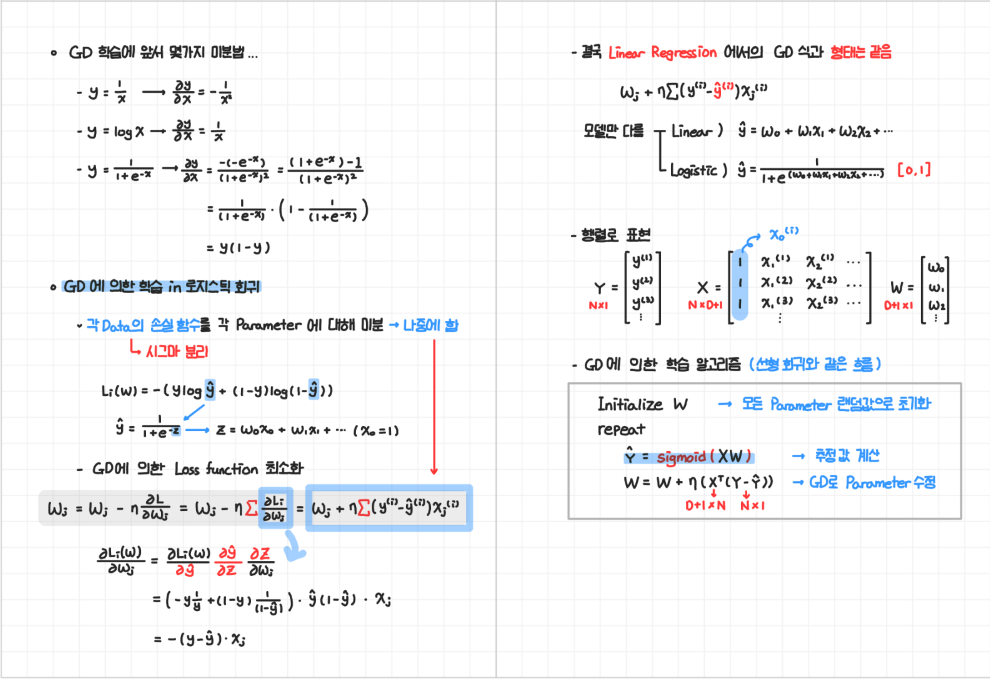 ∘ GD 학습에 앞서 몇가지 미분법...
- y = 1/x → ∂y/∂x = -1/x²
- y = log x → ∂y/∂x = 1/x
- y = 1/(1+e^-x) → ∂y/∂x = -(-e^-x)/(1+e^-x)² = ((1+e^-x)-1)/(1+e^-x)²
= 1/(1+e^-x) · (1 - 1/(1+e^-x))
= y(1-y)
∘ GD에 의한 학습 in 로지스틱 회귀
- 각 Data의 손실 함수를 각 Parameter에 대해 미분 → 나중에 합
↳ 시그마 분리
Li(w) = -(y log ŷ + (1-y)log(1-ŷ))
ŷ = 1/(1+e^-z) → z = w₀x₀ + w₁x₁ + ··· (x₀=1)
- GD에 의한 Loss function 최소화
wj = wj - η ∂L/∂wj = wj - η Σ ∂Li/∂wj = wj + η Σ(y^(i)-ŷ^(i))xj^(i)
∂Li(w)/∂wj = ∂Li(w)/∂ŷ ∂ŷ/∂z ∂z/∂wj
= (-y 1/ŷ + (1-y) 1/(1-ŷ)) · ŷ(1-ŷ) · xj
= -(y-ŷ)·xj
- 결국 Linear Regression 에서의 GD 식과 형태는 같음
wj + η Σ(y^(i)-ŷ^(i))xj^(i)
모델만 다름 Linear) ŷ = w₀ + w₁x₁ + w₂x₂ + ···
Logistic) ŷ = 1/(1+e^(w₀+w₁x₁+w₂x₂+···)) [0,1]
- 행렬로 표현 x₀^(i)
Y = [y^(1) y^(2) y^(3) ⋮] X = [1 x₁^(1) x₂^(1) ··· 1 x₁^(2) x₂^(2) ··· 1 x₁^(3) x₂^(3) ··· ⋮] W = [w₀ w₁ w₂ ⋮]
N×1 N×D+1 D+1×1
- GD에 의한 학습 알고리즘 (선형 회귀와 같은 흐름)
Initialize W → 모든 Parameter 랜덤값으로 초기화
repeat
Ŷ = sigmoid(XW) → 추정값 계산
W = W + η(X^T(Y-Ŷ)) → GD로 Parameter 수정
D+1×N N×1